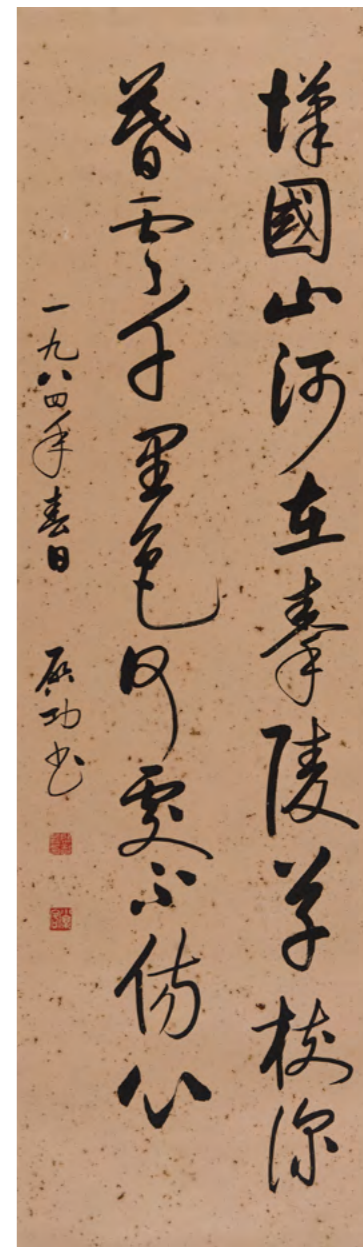 漢國山河在秦陵草樹深
暮雲千里色何處不傷心
一九八四年春日 启功書